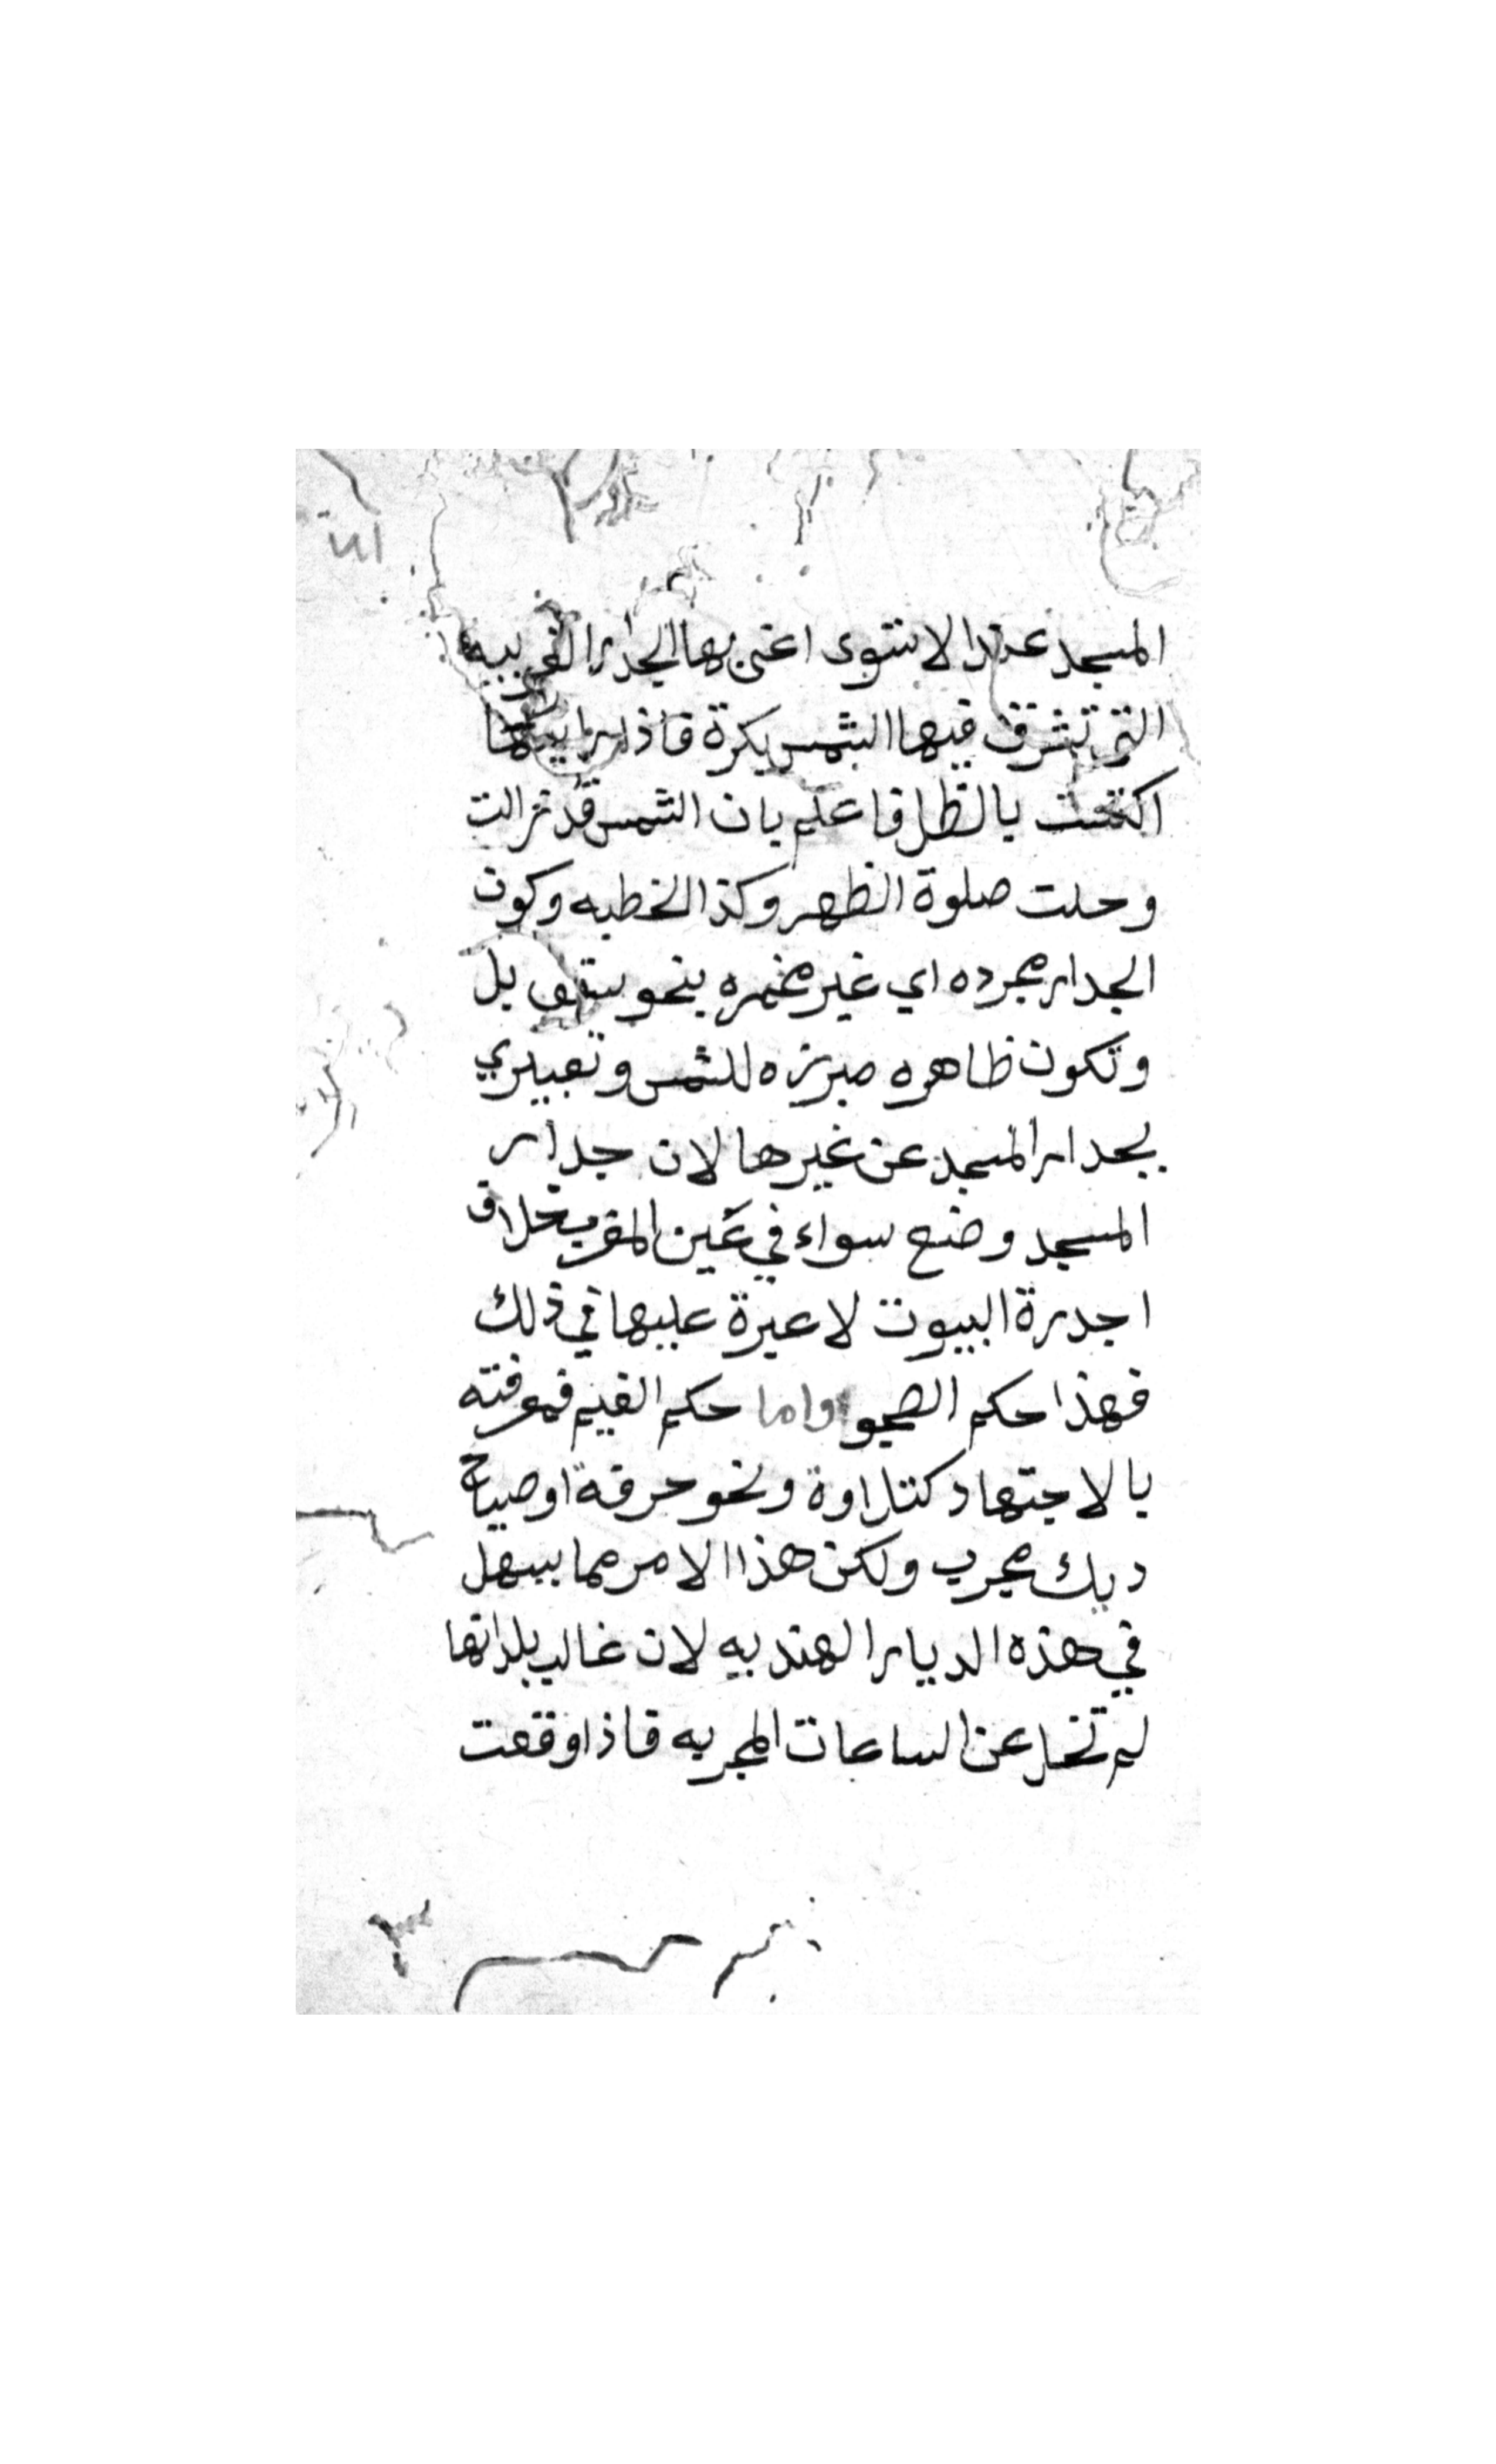 المسجد عند الاستوى اعنى بها الجدار الغربيه
التى تشرق فيها الشمس بكرة فاذا رايتها
اكتحت بالظل فاعلم بان الشمس قد زالت
وحلت صلوة الظهر وكذا الخطبه وكون
الجدار مجرده اي غير مخمره بنحو سقف بل
وتكون ظاهره مبرزه للشمس وتعبيري
بجدار المسجد عن غيرها لان جدار
المسجد وضع سواء في عين المغرب بخلاف
اجدرة البيوت لا عبرة عليها في ذلك
فهذا حكم الصحو واما حكم الغيم فمعرفته
بالاجتهاد كتلاوة ونحو حرفة او صياح
ديك مجرب ولكن هذا الامر مما يسهل
في هذه الديار الهنديه لان غالب بلداتها
لم تخل عن الساعات المجربه فاذا وقعت